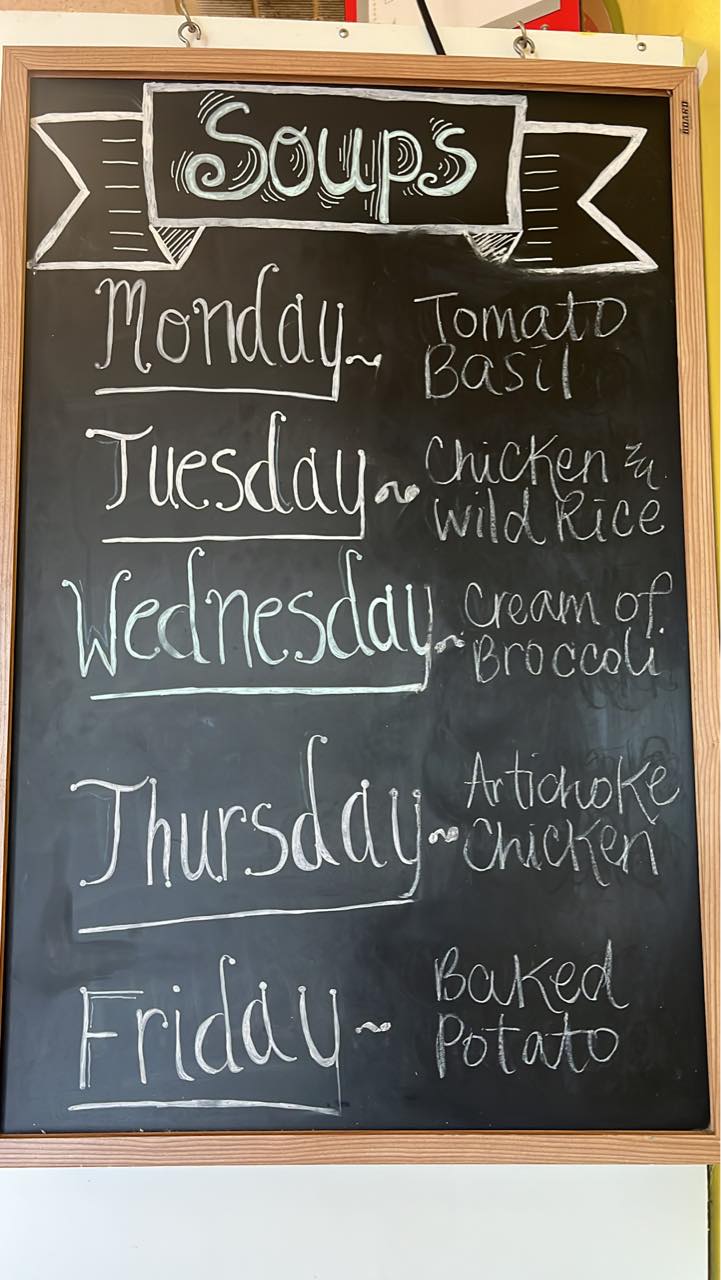 BOARD
Soups
Monday~ Tomato
Basil
Tuesday~ Chicken &
Wild Rice
Wednesday~ Cream of
Broccoli
Thursday~ Artichoke
Chicken
Friday~ Baked
Potato